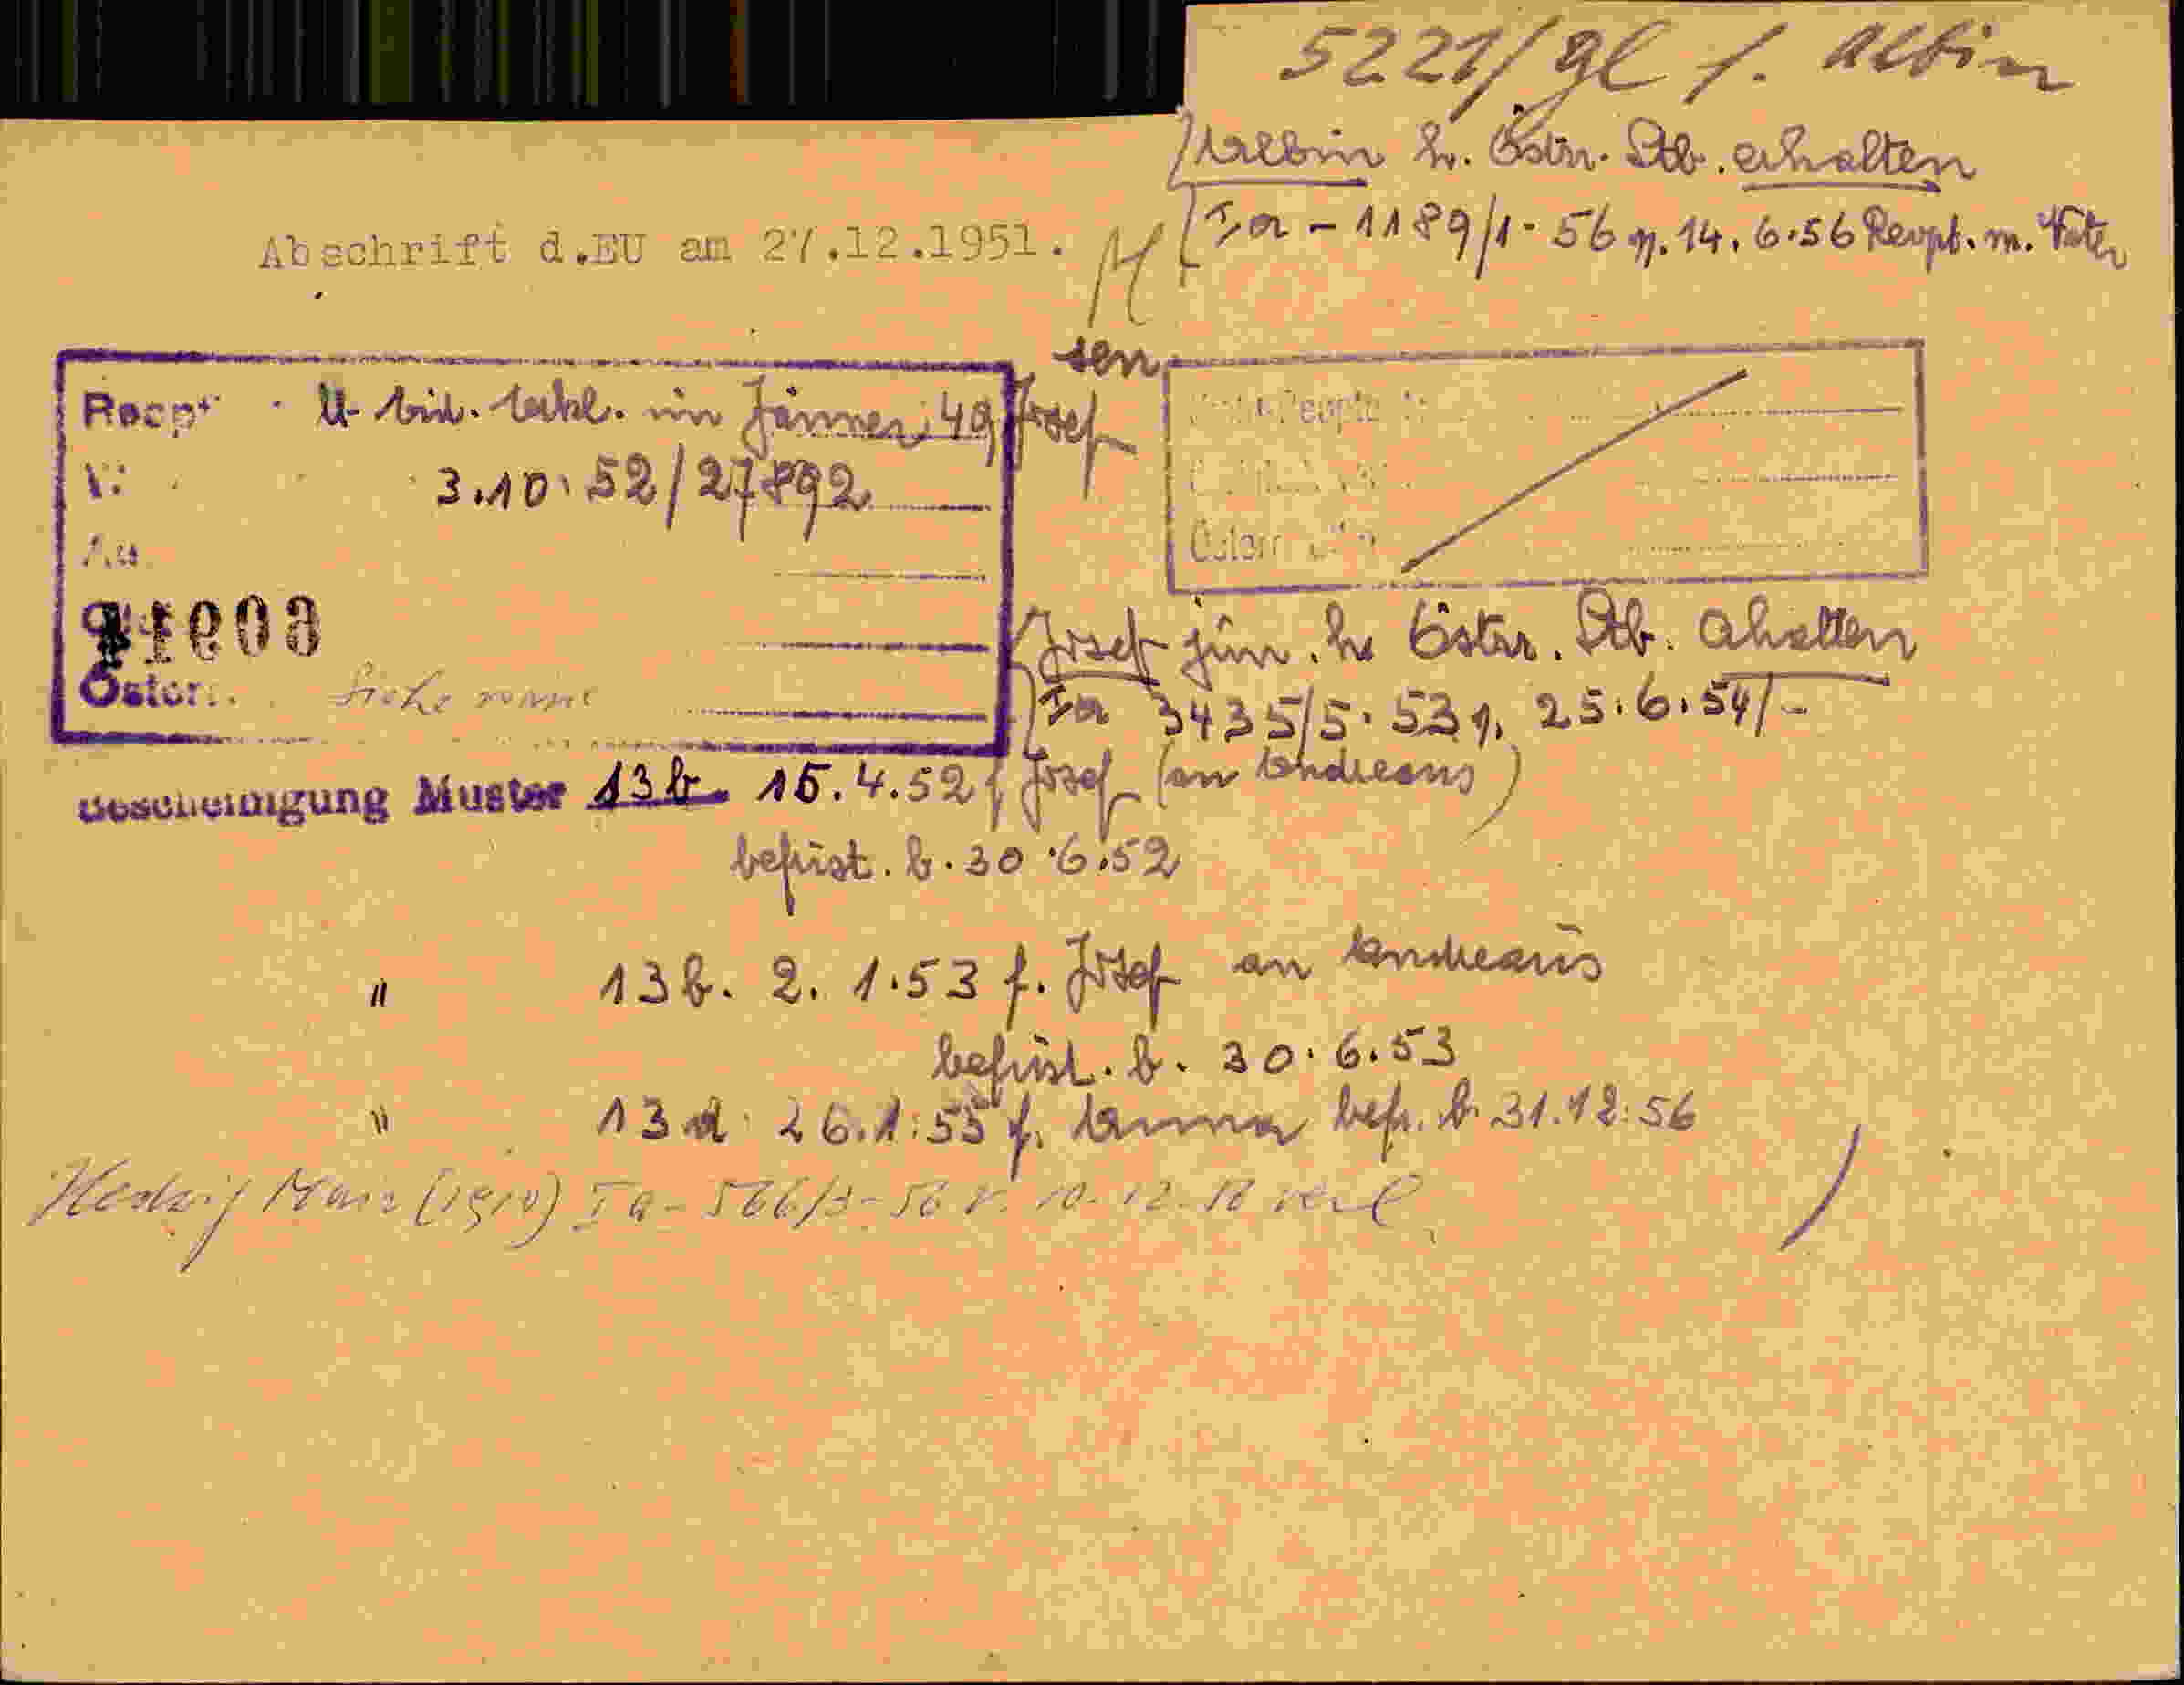 5221/gl f. Albin
Albin h. Östr. Stb. erhalten
Ia - 1189/1-56 v. 14.6.56 Reopt. m. Vater
Abschrift d.EU am 27.12.1951.
sen
Reopt U- im Jänner 49 Josef
3.10.52/27892
Österr. Siehe vorne
Josef jun. h. Östr. Stb. erhalten
Ia 3435/5-53 v. 25.6.54/-
Bescheinigung Muster 13b. 15.4.52 f. Josef (an Andreaus)
befrist. b. 30.6.52
" 13b. 2.1.53 f. Josef an Andreaus
befrist. b. 30.6.53
" 13a 26.1.55 f. Anna befr. b. 31.12.56
Hedwig Mair (1910) Ia - 566/3-56 v. 10.12.56 verl